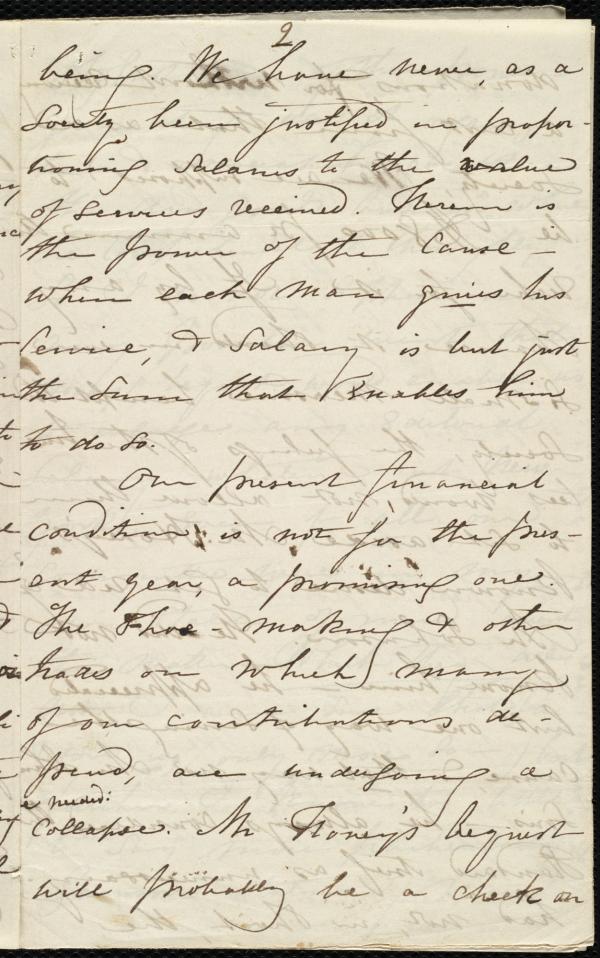 2
being. We have never, as a
Society been justified in propor-
tioning Salaries to the value
of Services received. Herein is
the power of the Cause —
when each man gives his
Service, & Salary is but just
the Sum that Enables him
to do so.
Our present financial
condition, is not for the pres-
ent year, a promising one.
The Shoe-making & other
trades on which many
of our contributions de-
pend, are undergoing a
collapse. Mr Hovey's bequest
will probably be a check on